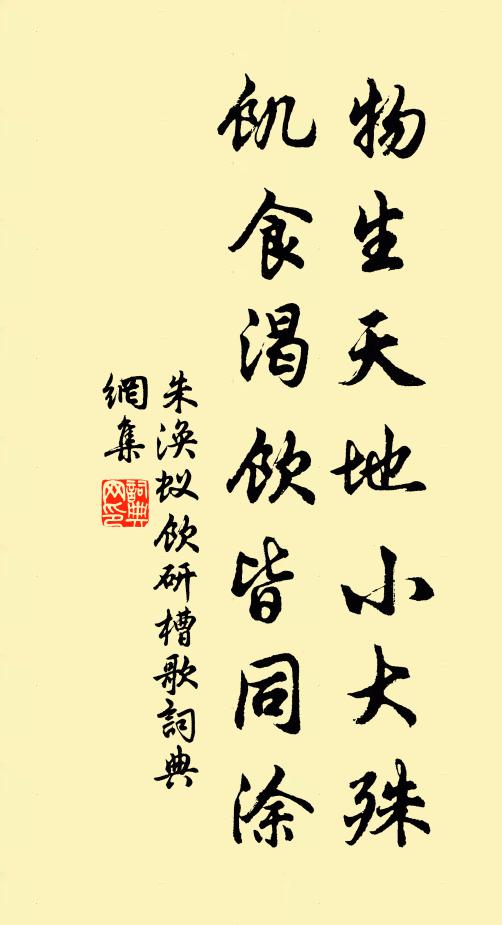 物生天地小大殊
飢食渴飲皆同涂
朱渙蚁飲研槽歌詞典
網集
詞典网印